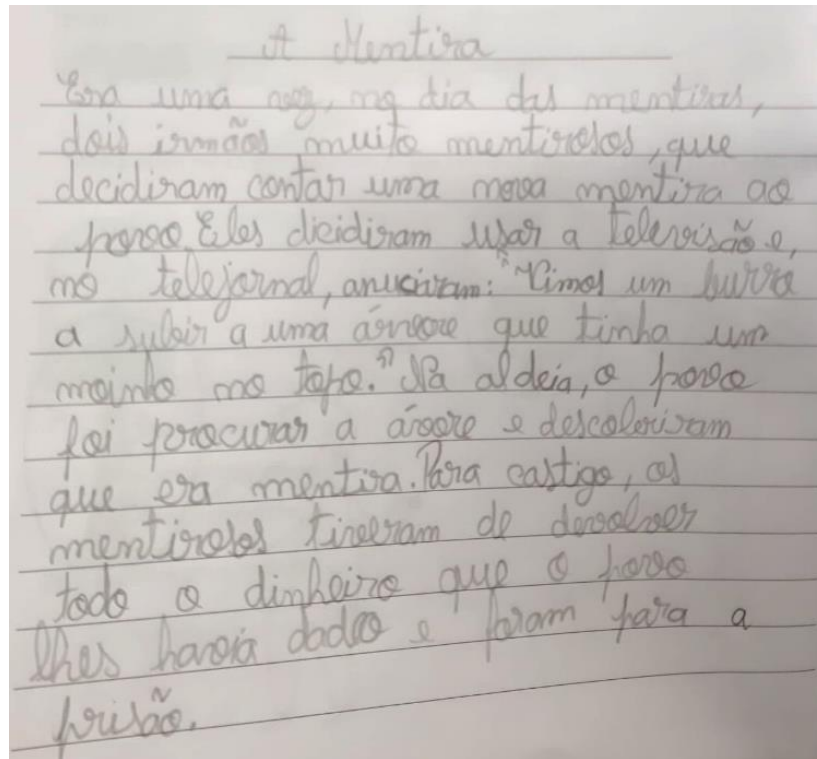 A Mentira
Era uma vez, no dia das mentiras,
dois irmãos muito mentirosos, que
decidiram contar uma nova mentira ao
povo. Eles dicidiram usar a televisão e,
no telejornal, anuciaram: "Vimos um burro
a subir a uma árvore que tinha um
moinho no topo." Na aldeia, o povo
foi procurar a árvore e descobriram
que era mentira. Para castigo, os
mentirosos tiveram de devolver
todo o dinheiro que o povo
lhes havia dado e foram para a
prisão.